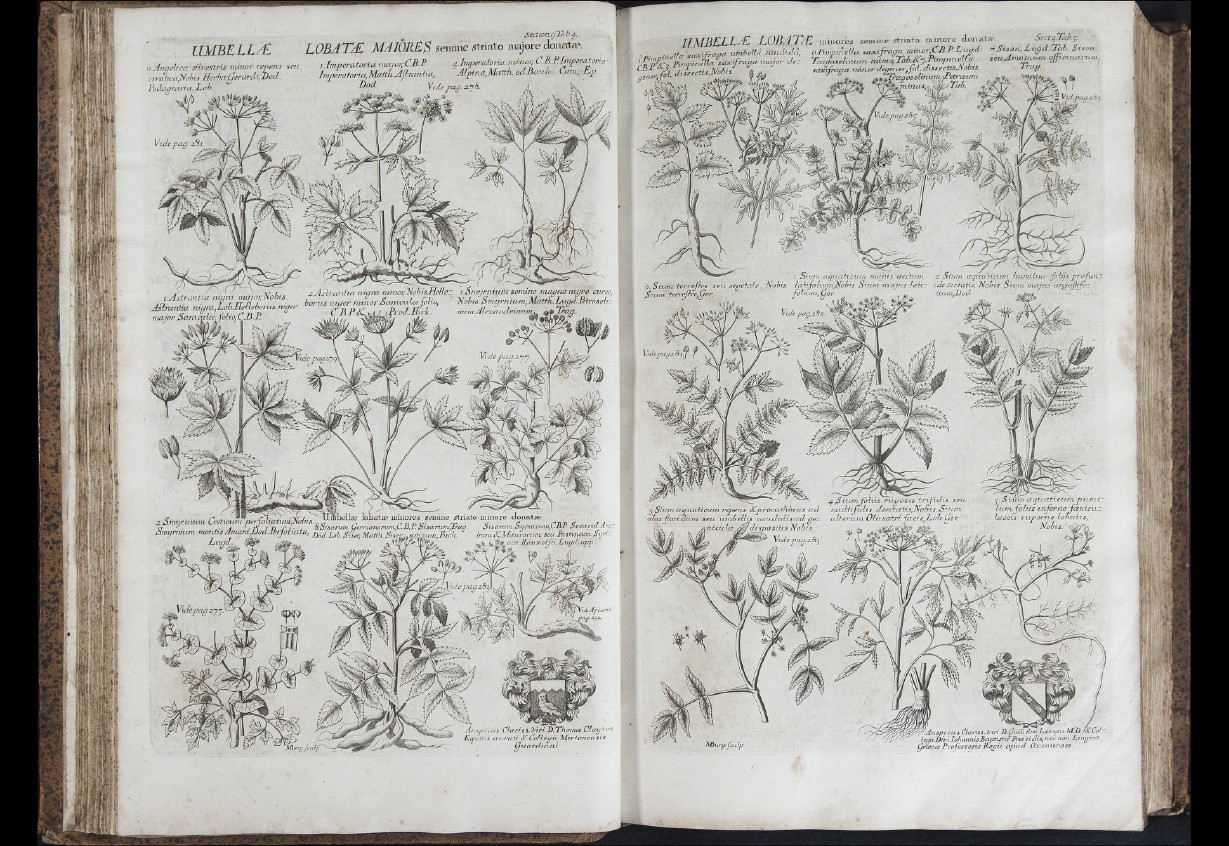 Section 9 Tab 4.
UMBELLÆ LOBATÆ MAIORES semine striato majore donatæ.
Angelica silvestris minor repens seu
erratica, Nobis Herba Gerardi, Dod.
Podagraria, Lob.
1 Imperatoria major, C.B.P
Imperatoria, Matth. Astrantia,
Dod.
Vide pag. 278.
Imperatoria minor, C.B.P. Imperatoria
Alpina, Matth. ed Bauh. Cam. Ep
Vide pag. 281
1 Astrantia nigra major, Nobis.
Astrantia nigra, Lob. Helleborus niger
major Saniculæ folio, C.B.P.
2 Astrantia nigra minor Nobis, Helle-
borus niger minor Saniculæ folio,
C.B.P. & Prod.
1 Smyrnium semine magno nigro
Nobis Smyrnium, Matth. Lugd. Petroseli-
num Alexandrinum, Trag.
Vide pag.
Vide pag. 277.
2 Smyrnium Creticum perfoliatum, Nobis
Smyrnium montis Amani, Dod. Perfoliata,
Lugd.
Umbellæ lobatæ minores semine striato minore donatæ
Sisarum Germanorum, C.B.P. Sisarum Trag.
Dod. Lob. Siser, Matth.
Sisarum Syriacum, C.B.P. Secacul Ara-
bum & Maurorum seu Pastinaca Syri-
aca Rauwolfii, Lugd. app
Vide pag. 277.
Vide pag. 281
pag.
MBurg sculp
Auspiciis Clariss. Viri D. Thomæ Clayton
Equitis aurati & Collegii Mertonensis
Guardiani
Sect 9 Tab. 5
UMBELLÆ LOBATÆ minores semine striato minore donatæ
Pimpinella saxifraga umbellâ candidâ,
C.B.P. & 5 Pimpinella saxifraga major de-
gener, fol. dissectis, Nobis
6 Pimpinella saxifraga minor, C.B.P. Lugd
Tragoselinum minus, Tab. & 7 Pimpinella
saxifraga minor degener, fol. dissectis, Nobis
Tragoselinum Petræum
minus, Tab.
Sison, Lugd. Tab. Sison
seu Amomum officinarum,
Trag.
Vide pag.
Vid. pag. 283
Sium terrestre seu segetale, Nobis
Sium terrestre, Ger
1 Sium aquaticum nobis erectum
latifolium, Nobis Sium majus lati-
folium, Ger
2 Sium aquaticum, humilius foliis profun-
de serratis Nobis Sium majus angustifo-
lium, Dod.
Vide pag. 282
Vide pag. 283
3 Sium aquaticum repens & procumbens ad
alas floridum seu umbellis candidis ad ge-
nicula dispositis Nobis
4 Sium foliis rugosis trifidis seu
multifidis dentatis, Nobis, Sium
alterum Olusatri facie, Lob. Ger.
5 Sium aquaticum pumi-
lum foliis infernè fœnicu-
laceis supernè lobatis,
Nobis.
Vide pag. 283
MBurg sculp
Auspiciis Clariss. Viri D. Guilielmi Levins M.D. & Col-
legii Divi Iohannis Baptistæ Præsidis, nec non Linguæ
Græcæ Professoris Regii apud Oxonienses.